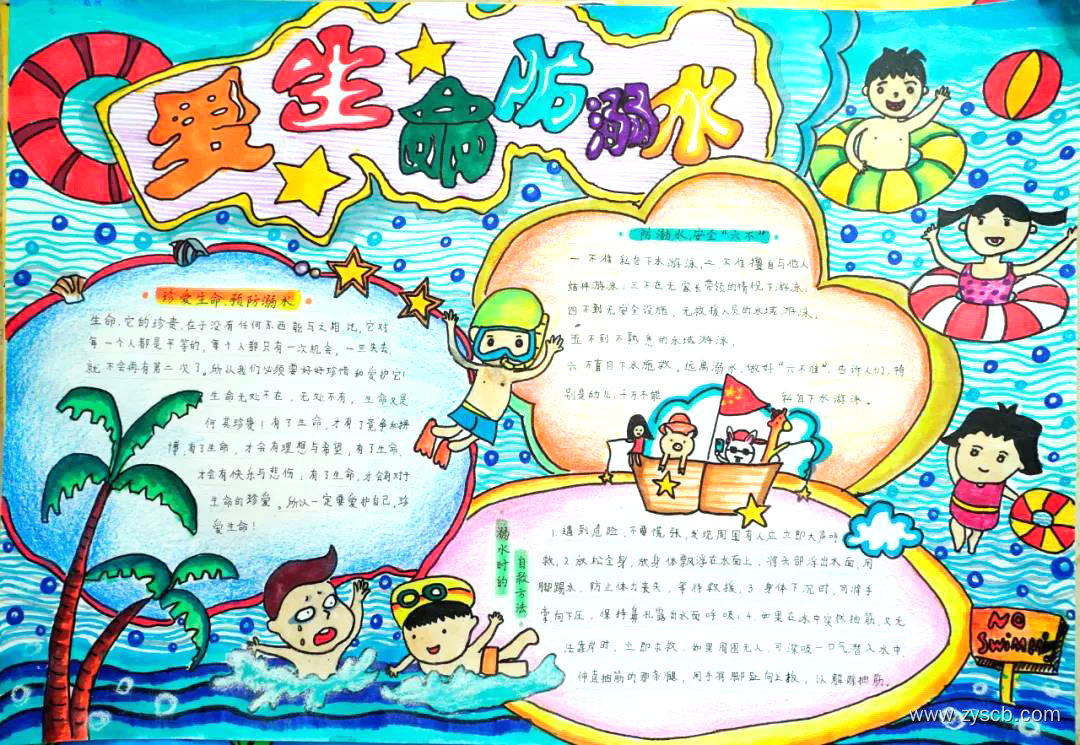 爱生命防溺水
珍爱生命、预防溺水
生命，它的珍贵，在于没有任何东西能与之相比，它对
每一个人都是平等的，每个人都只有一次机会，一旦失去，
就不会再有第二次了。所以我们必须要好好珍惜和爱护它！
生命无处不在，无处不有，生命又是
何其珍贵！有了生命，才有了竞争和拼
搏，有了生命，才会有理想与希望，有了生命，
才会有快乐与悲伤；有了生命，才会有对于
生命的珍爱。所以一定要爱护自己，珍
爱生命！
防溺水安全“六不”
一不准私自下水游泳，二不准擅自与他人
结伴游泳；三不在无家长带领的情况下游泳，
四不到无安全设施、无救援人员的水域游泳，
五不到不熟悉的水域游泳，
六不盲目下水施救。远离溺水，做好“六不准”，告诉人们，特
别是幼儿，千万不能 私自下水游泳。
溺水时的
自救方法
1.遇到危险，不要慌张，发现周围有人应立即大声呼
救，2.放松全身，放身体飘浮在水面上，将头部浮出水面，用
脚踢水，防止体力丧失，等待救援，3.身体下沉时，可将手
掌向下压，保持鼻孔露出水面呼吸；4.如果在水中突然抽筋，又无
法靠岸时，立即求救，如果周围无人，可深吸一口气潜入水中，
伸直抽筋的那条腿，用手将脚趾向上扳，以解除抽筋。
NO
SWIMMING
www.zyscb.com